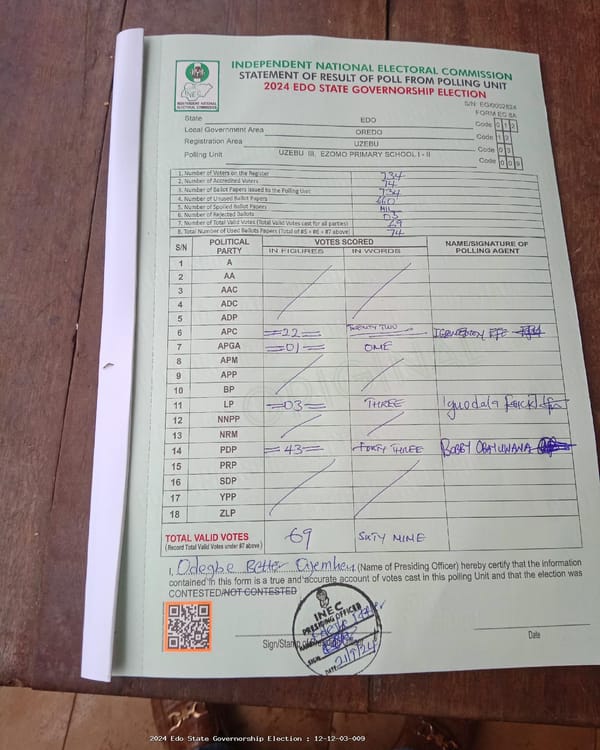 INDEPENDENT NATIONAL ELECTORAL COMMISSION
STATEMENT OF RESULT OF POLL FROM POLLING UNIT
2024 EDO STATE GOVERNORSHIP ELECTION
INEC
INDEPENDENT NATIONAL ELECTORAL COMMISSION
S/N: EG/0002824
FORM EC 8A
State EDO Code 0 1 2
Local Government Area OREDO Code 1 2
Registration Area UZEBU Code 0 3
Polling Unit UZEBU III, EZOMO PRIMARY SCHOOL I - II Code 0 0 9
1. Number of Voters on the Register 734
2. Number of Accredited Voters 74
3. Number of Ballot Papers issued to the Polling Unit 734
4. Number of Unused Ballot Papers 660
5. Number of Spoiled Ballot Papers NIL
6. Number of Rejected Ballots 05
7. Number of Total Valid Votes (Total Valid Votes cast for all parties) 69
8. Total Number of Used Ballots Papers (Total of #5 + #6 + #7 above) 74
S/N POLITICAL PARTY VOTES SCORED NAME/SIGNATURE OF POLLING AGENT
IN FIGURES IN WORDS
1 A
2 AA
3 AAC
4 ADC
5 ADP
6 APC =22= TWENTY TWO
7 APGA =01= ONE
8 APM
9 APP
10 BP
11 LP =03= THREE
12 NNPP
13 NRM
14 PDP =43= FORTY THREE BOBBY OBAYUWANA
15 PRP
16 SDP
17 YPP
18 ZLP
TOTAL VALID VOTES 69 SIXTY NINE
(Record Total Valid Votes under #7 above)
I, Odegbe Better (Name of Presiding Officer) hereby certify that the information
contained in this form is a true and accurate account of votes cast in this polling Unit and that the election was
CONTESTED/NOT CONTESTED
INEC
PRESIDING OFFICER
Sign/Stamp of
SIGN
DATE 21/9/24
Date
2024 Edo State Governorship Election : 12-12-03-009